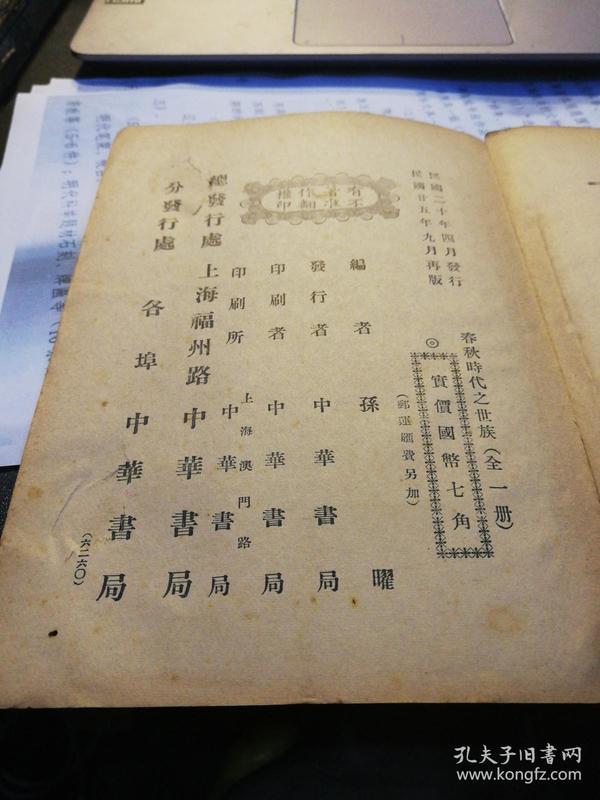 民國二十年四月發行
民國廿五年九月再版
春秋時代之世族（全一册）
◎實價國幣七角
（郵運匯費另加）
有著作權
不准翻印
編者 孫曜
發行者 中華書局
印刷者 中華書局
印刷所 上海澳門路 中華書局
總發行處 上海福州路 中華書局
分發行處 各埠 中華書局
（六二六〇）
孔夫子旧书网
www.kongfz.com